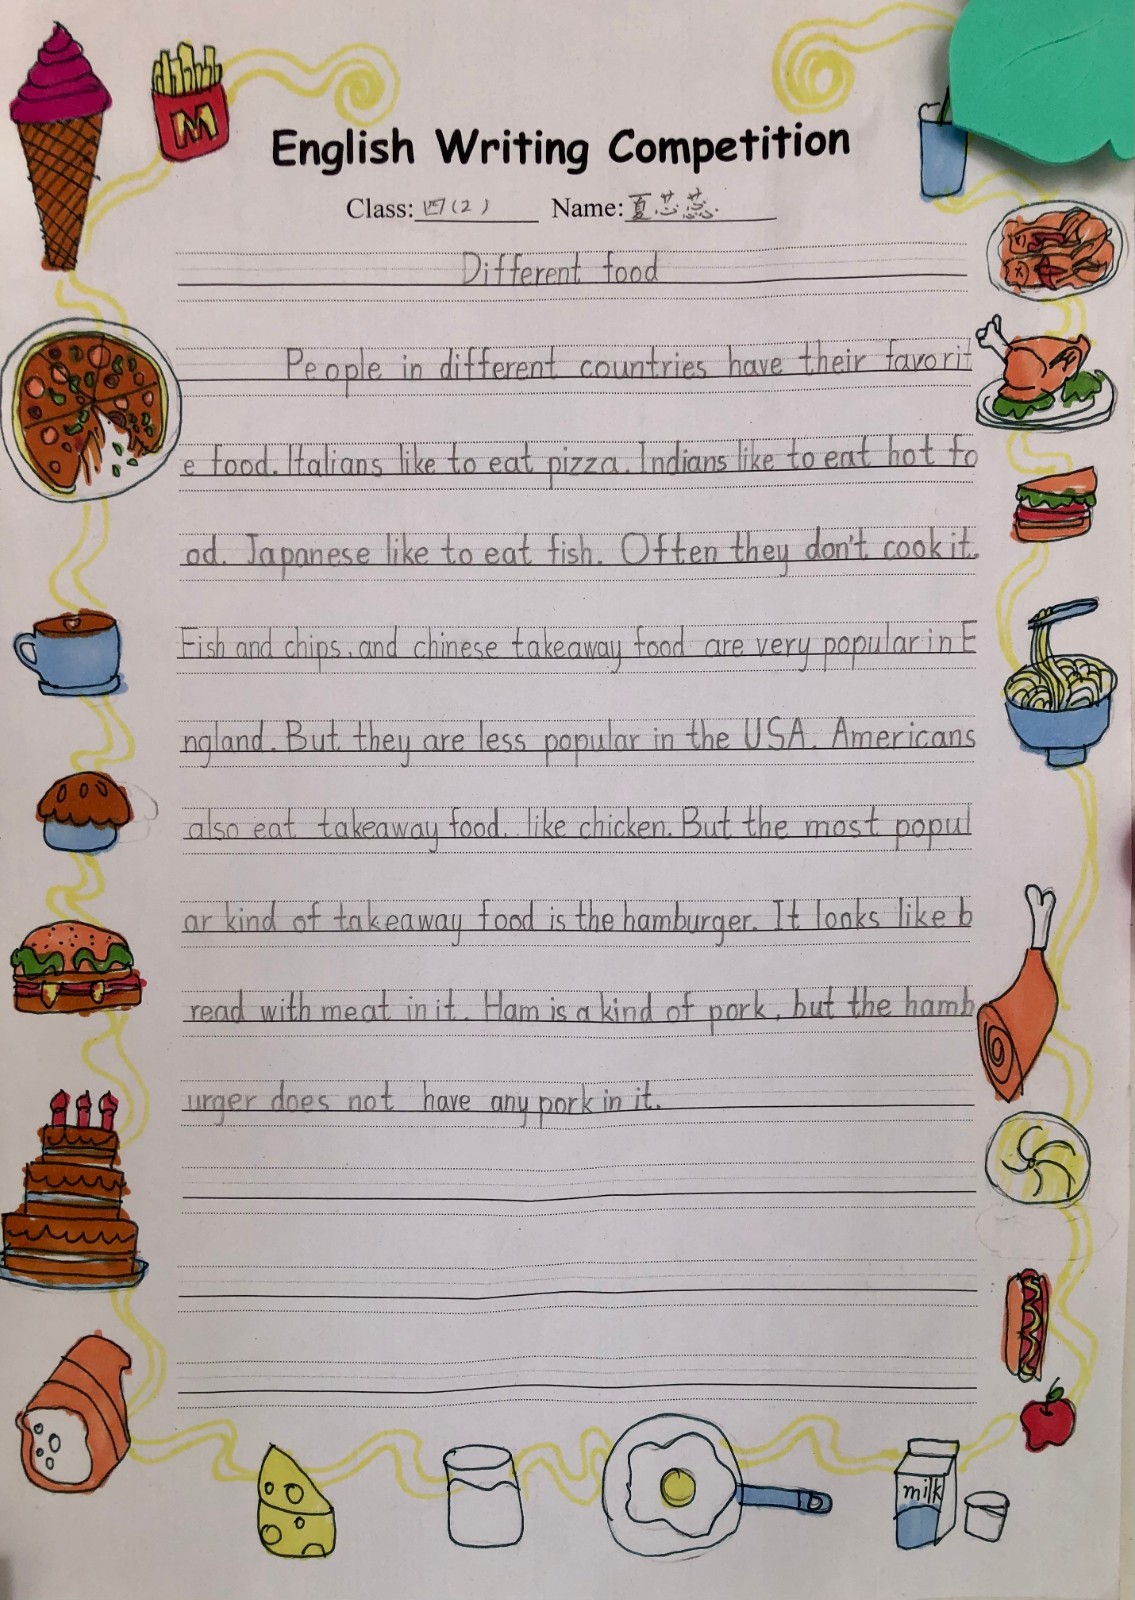 M
English Writing Competition
Class: 四(2) Name: 夏芯蕊
Different food
People in different countries have their favorit
e food. Italians like to eat pizza. Indians like to eat hot fo
od. Japanese like to eat fish. Often they don't cook it.
Fish and chips, and chinese takeaway food are very popular in E
ngland. But they are less popular in the USA. Americans
also eat takeaway food, like chicken. But the most popul
ar kind of takeaway food is the hamburger. It looks like b
read with meat in it. Ham is a kind of pork, but the hamb
urger does not have any pork in it.
milk